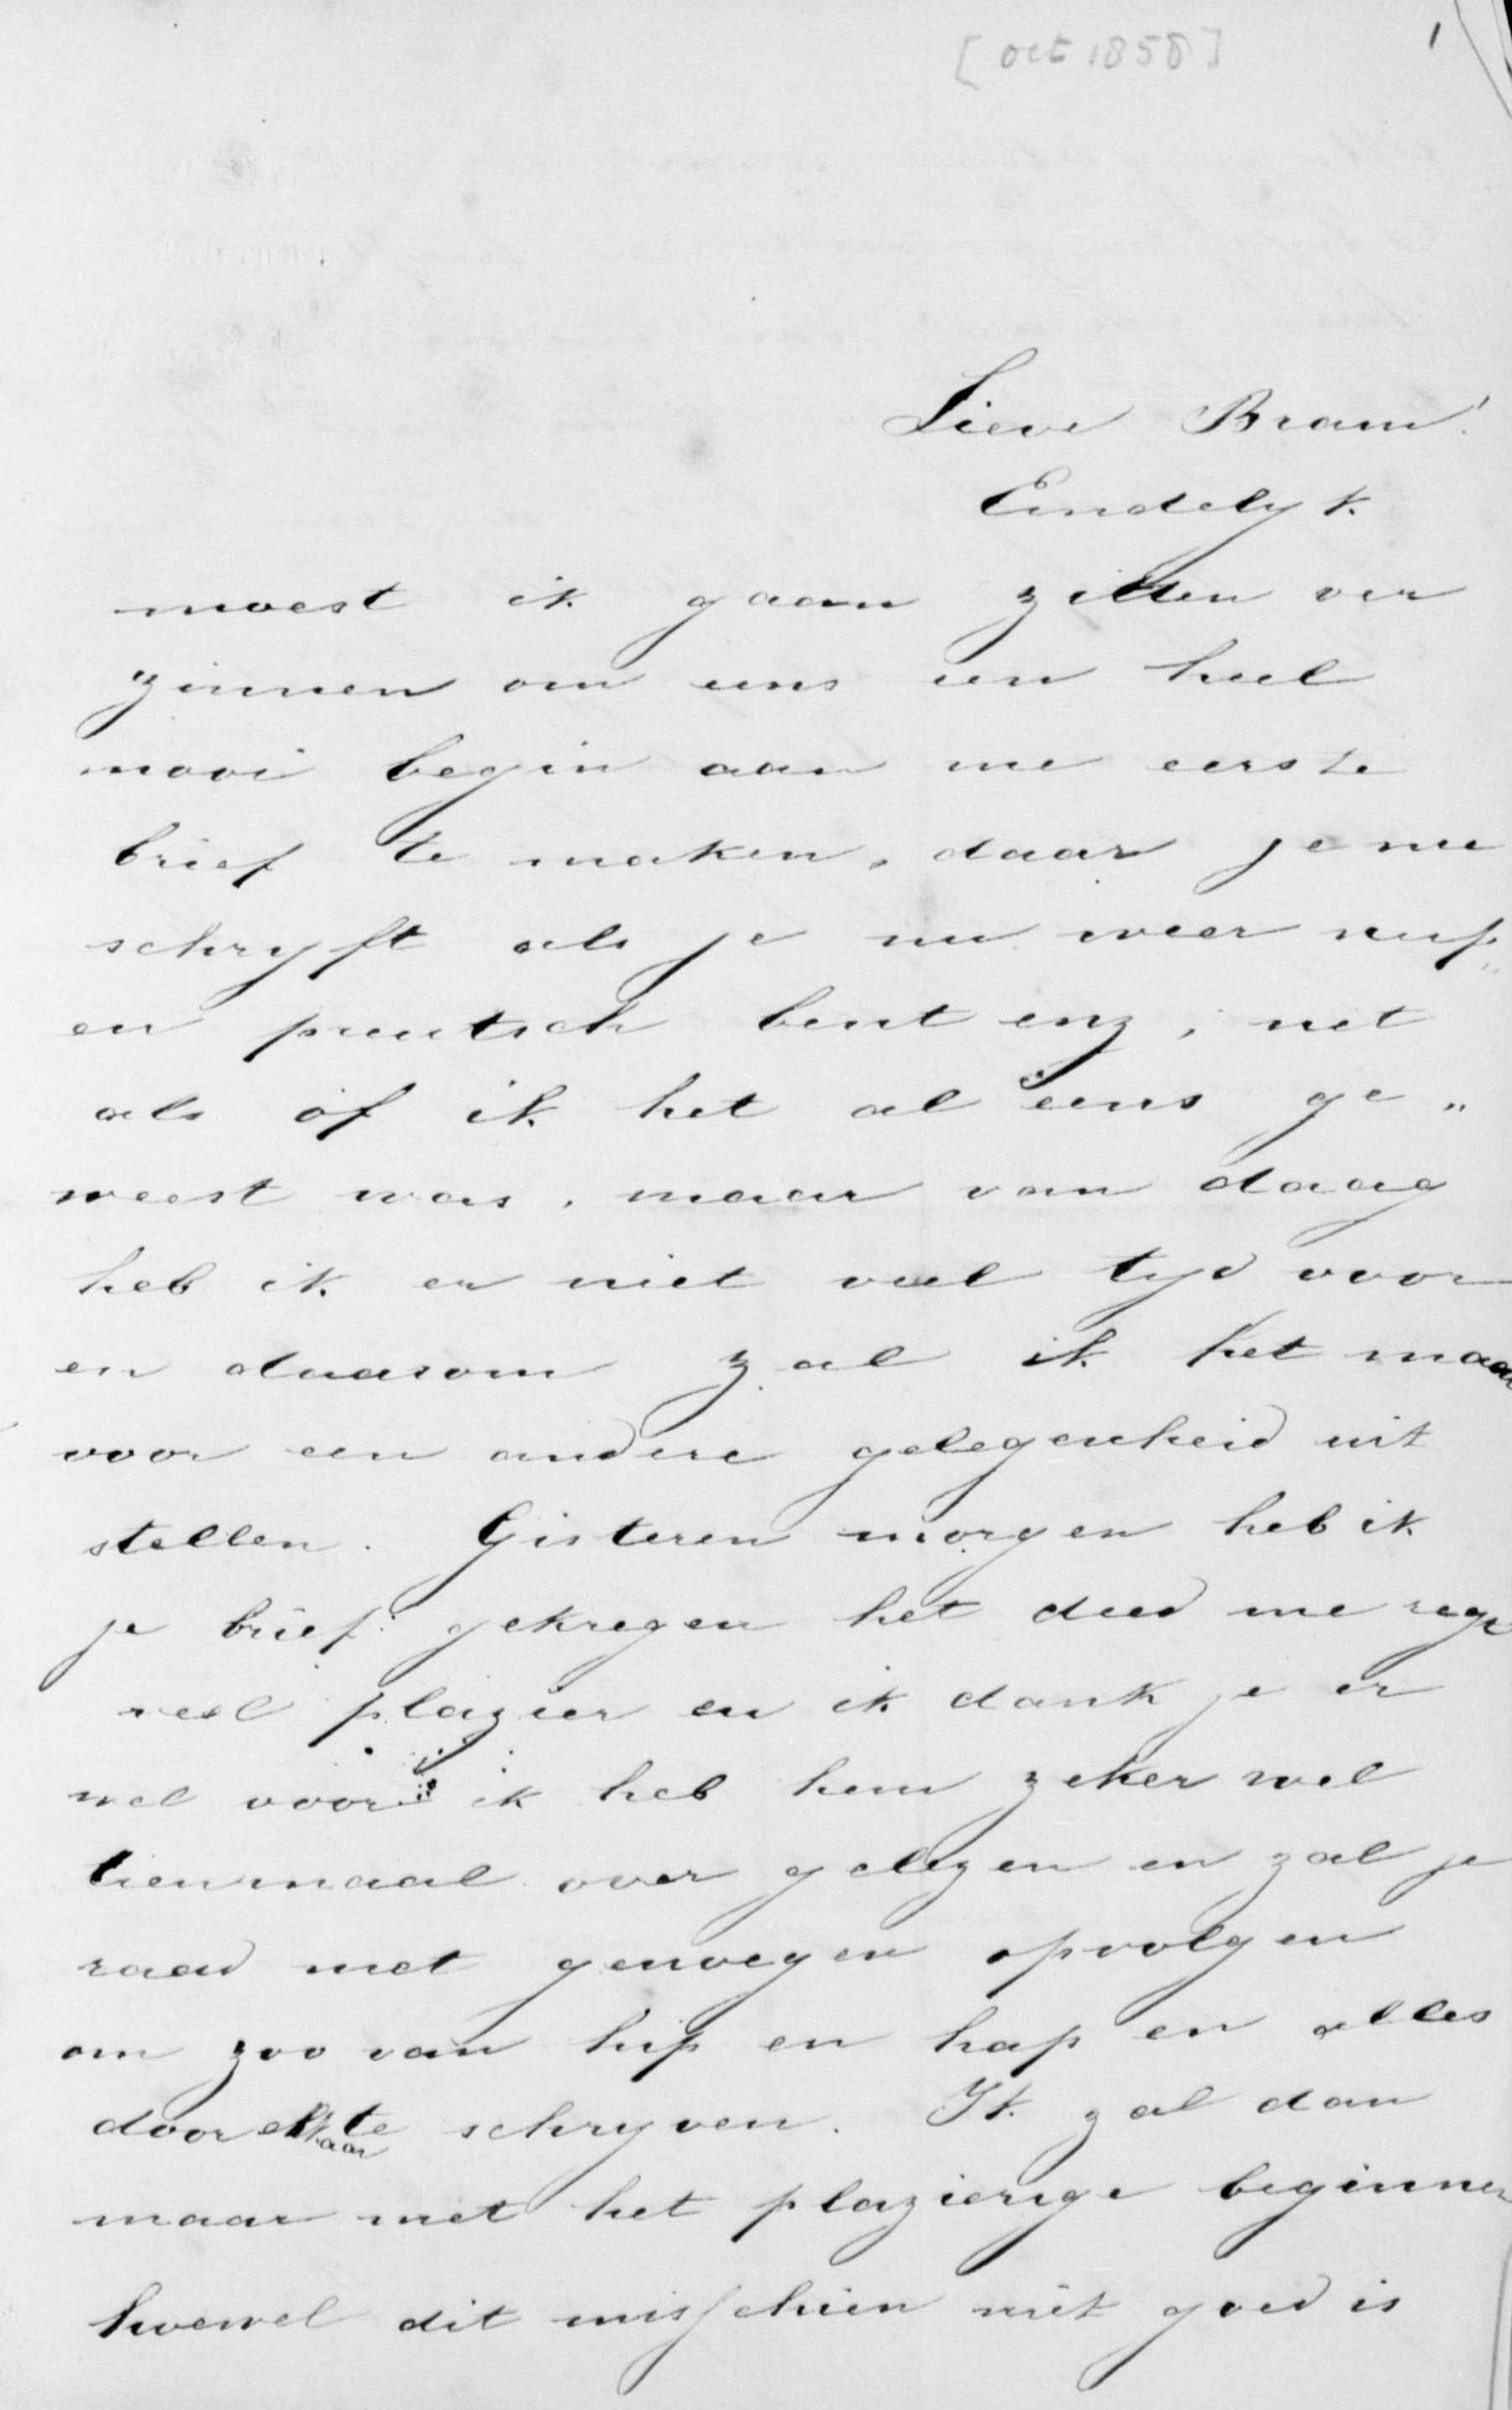 [oct 1858]
1
Lieve Bram!
Eindelyk
moest ik gaan zitten ver
zinnen om eens een heel
mooi begin aan me eerste
brief te maken, daar je me
schryft als je nu weer nuf„
en preutsch bent enz, net
als of ik het al eens ge„
weest was, maar van daag
heb ik er niet veel tyd voor
en daarom zal ik het maar
voor een andere gelegenheid uit
stellen. Gisteren morgen heb ik
je brief gekregen het deed me regt
veel plazier en ik dank je er
wel voor ik heb hem zeker wel
tienmaal over gelezen en zal je
raad met genoegen opvolgen
om zoo van hip en hap en alles
door elkaar te schryven. Ik zal dan
maar met het plazierige beginnen
hoewel dit misschien niet goed is